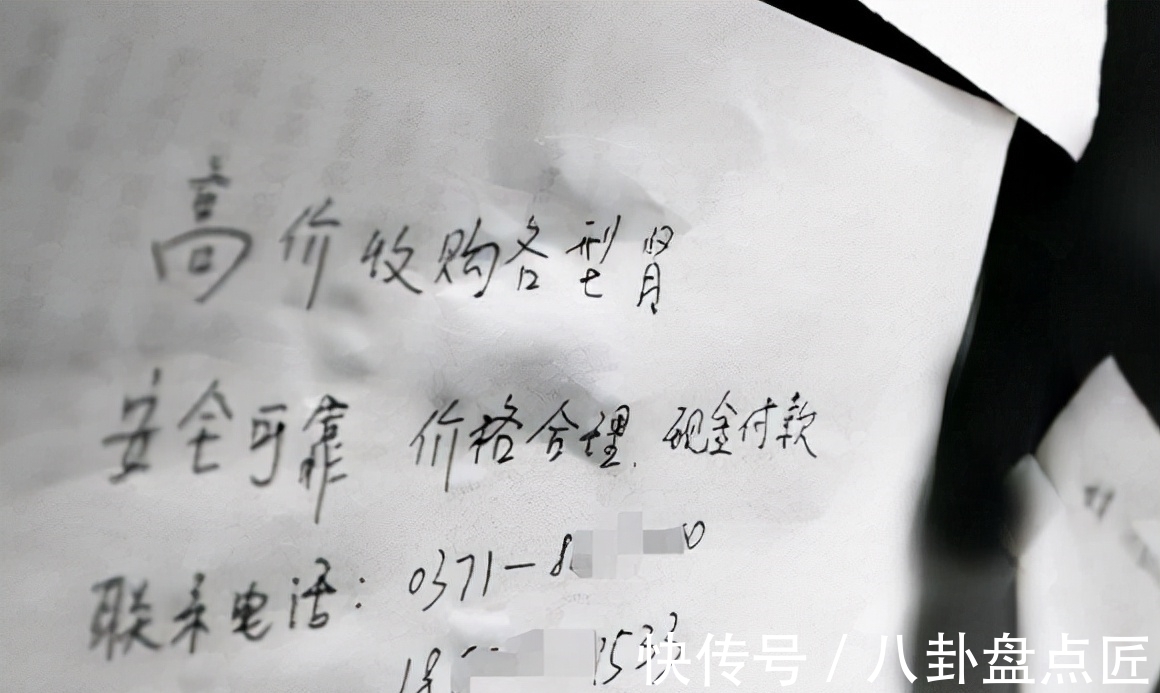 高价收购各型肾
安全可靠 价格合理.现金付款
联系电话: 0371-8 0
18 9533
快传号 / 八卦盘点匠